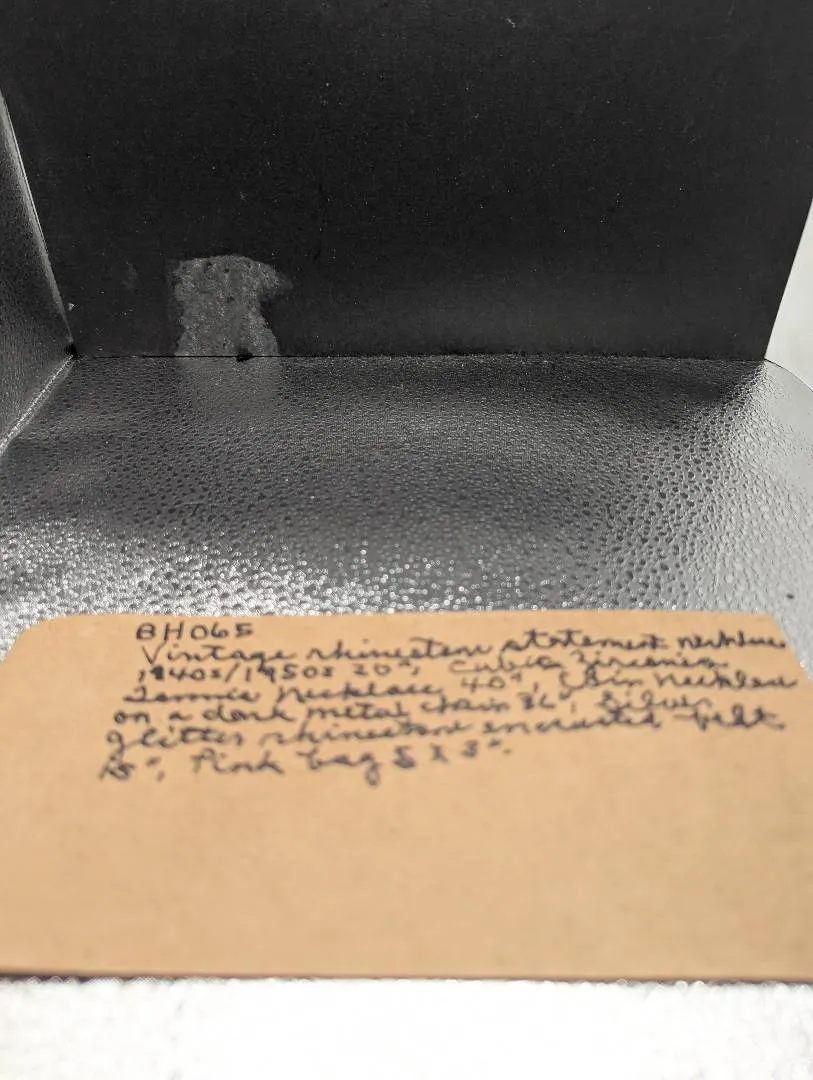 BH065
Vintage rhinestone statement necklace
1940s/1950s 20", Cubic Zirconia
Tennis necklace 40", necklace
on a dark metal chain 36", Silver
glitter rhinestone encrusted belt
Pink bag 5 X 3".